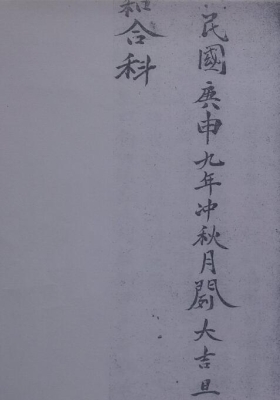 民國庚申九年冲秋月大吉旦
和合科